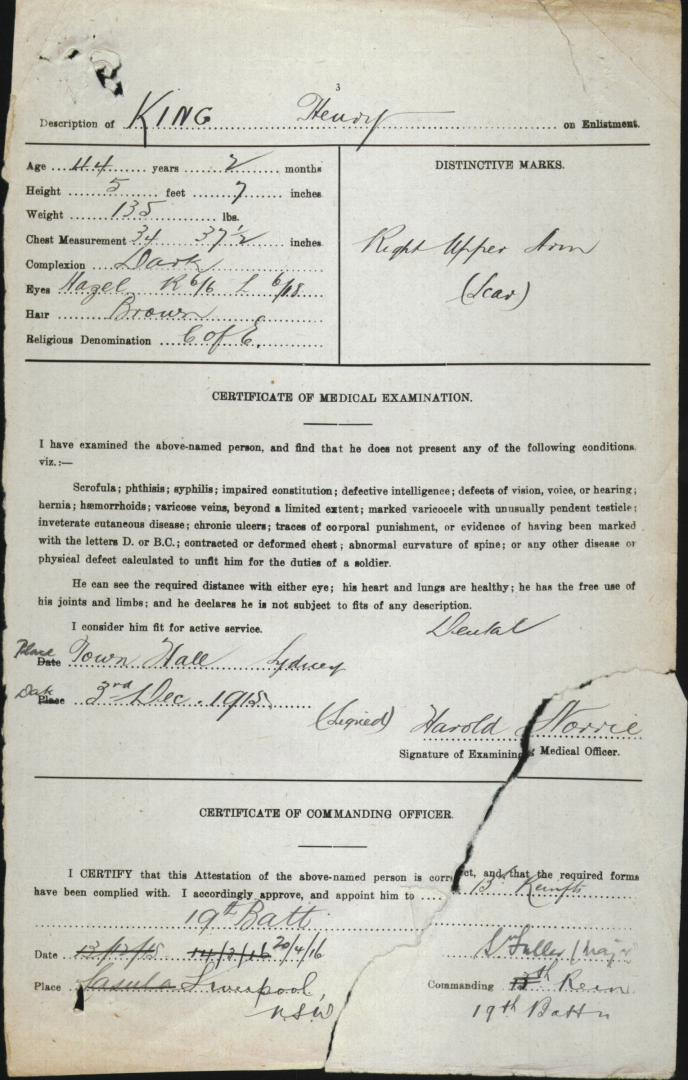 3
Description of KING Henry on Enlistment.
Age 44 years 2 months
Height 5 feet 7 inches
Weight 135 lbs.
Chest Measurement 34 37 1/2 inches
Complexion Dark
Eyes Hazel R 6/6 L 6/18
Hair Brown
Religious Denomination C of E.
DISTINCTIVE MARKS.
Right Upper Arm
(Scar)
CERTIFICATE OF MEDICAL EXAMINATION.
I have examined the above-named person, and find that he does not present any of the following conditions
viz.:—
Scrofula; phthisis; syphilis; impaired constitution; defective intelligence; defects of vision, voice, or hearing;
hernia; hæmorrhoids; varicose veins, beyond a limited extent; marked varicocele with unusually pendent testicle;
inveterate cutaneous disease; chronic ulcers; traces of corporal punishment, or evidence of having been marked
with the letters D. or B.C.; contracted or deformed chest; abnormal curvature of spine; or any other disease or
physical defect calculated to unfit him for the duties of a soldier.
He can see the required distance with either eye; his heart and lungs are healthy; he has the free use of
his joints and limbs; and he declares he is not subject to fits of any description.
I consider him fit for active service. Dental
Place Date Town Hall Sydney
Date Place 3rd Dec. 1915
(Signed) Harold Norrie
Signature of Examining Medical Officer.
CERTIFICATE OF COMMANDING OFFICER.
I CERTIFY that this Attestation of the above-named person is correct, and that the required forms
have been complied with. I accordingly approve, and appoint him to
19th Batt
Date 13/12/15 14/3/16 20/4/16
Place Casula Liverpool,
NSW
S Fuller (Major
Commanding 13th Rein
19th Battn